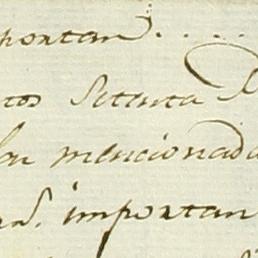 portan....
tos setenta
las mencionada
importan